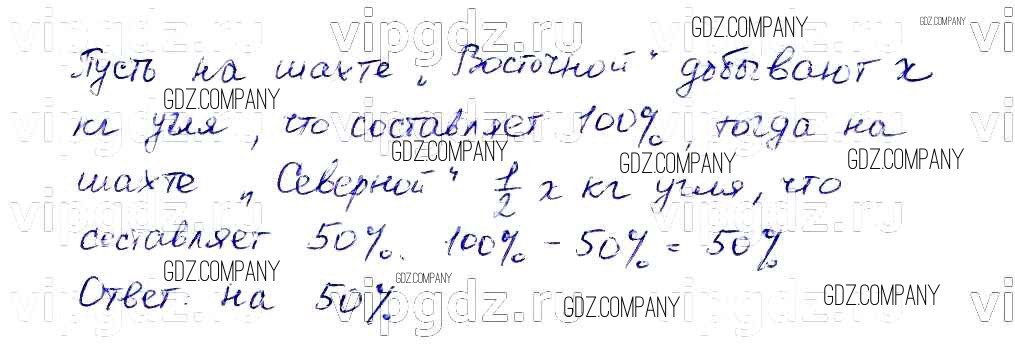 vipgdz.ru vipgdz.ru vipgdz.ru vi
GDZ.COMPANY GDZ.COMPANY
Пусть на шахте „Восточной" добывают x
GDZ.COMPANY
кг угля, что составляет 100%, тогда на
vipgdz.ru vipgdz.ru vipgdz.ru vi
GDZ.COMPANY GDZ.COMPANY GDZ.COMPANY
шахте „Северной" 1/2 x кг угля, что
vipgdz.ru vipgdz.ru vipgdz.ru vi
составляет 50%. 100% - 50% = 50%
GDZ.COMPANY GDZ.COMPANY
Ответ: на 50%.
vipgdz.ru vipgdz.ru vipgdz.ru vi
GDZ.COMPANY GDZ.COMPANY